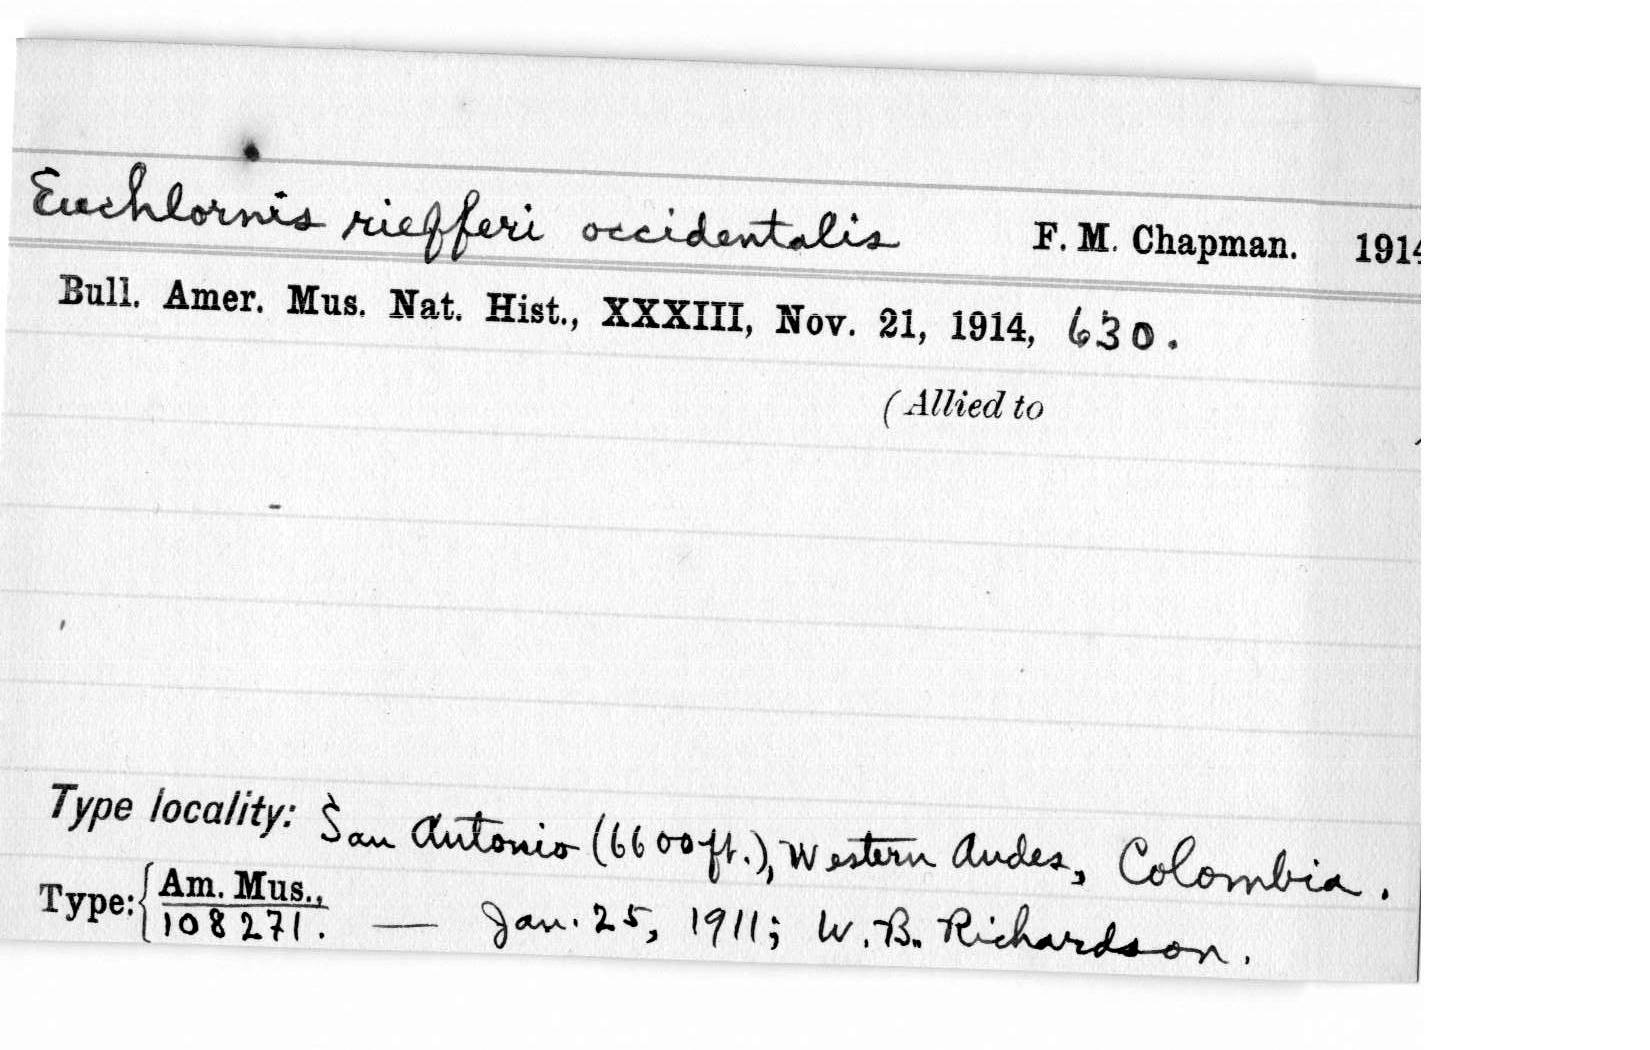 Euchlornis riefferi occidentalis F. M. Chapman. 1914
Bull. Amer. Mus. Nat. Hist., XXXIII, Nov. 21, 1914, 630.
(Allied to )
Type locality: San Antonio (6600ft.), Western Andes, Colombia.
Type: { Am. Mus., 
108271. — Jan. 25, 1911; W. B. Richardson.